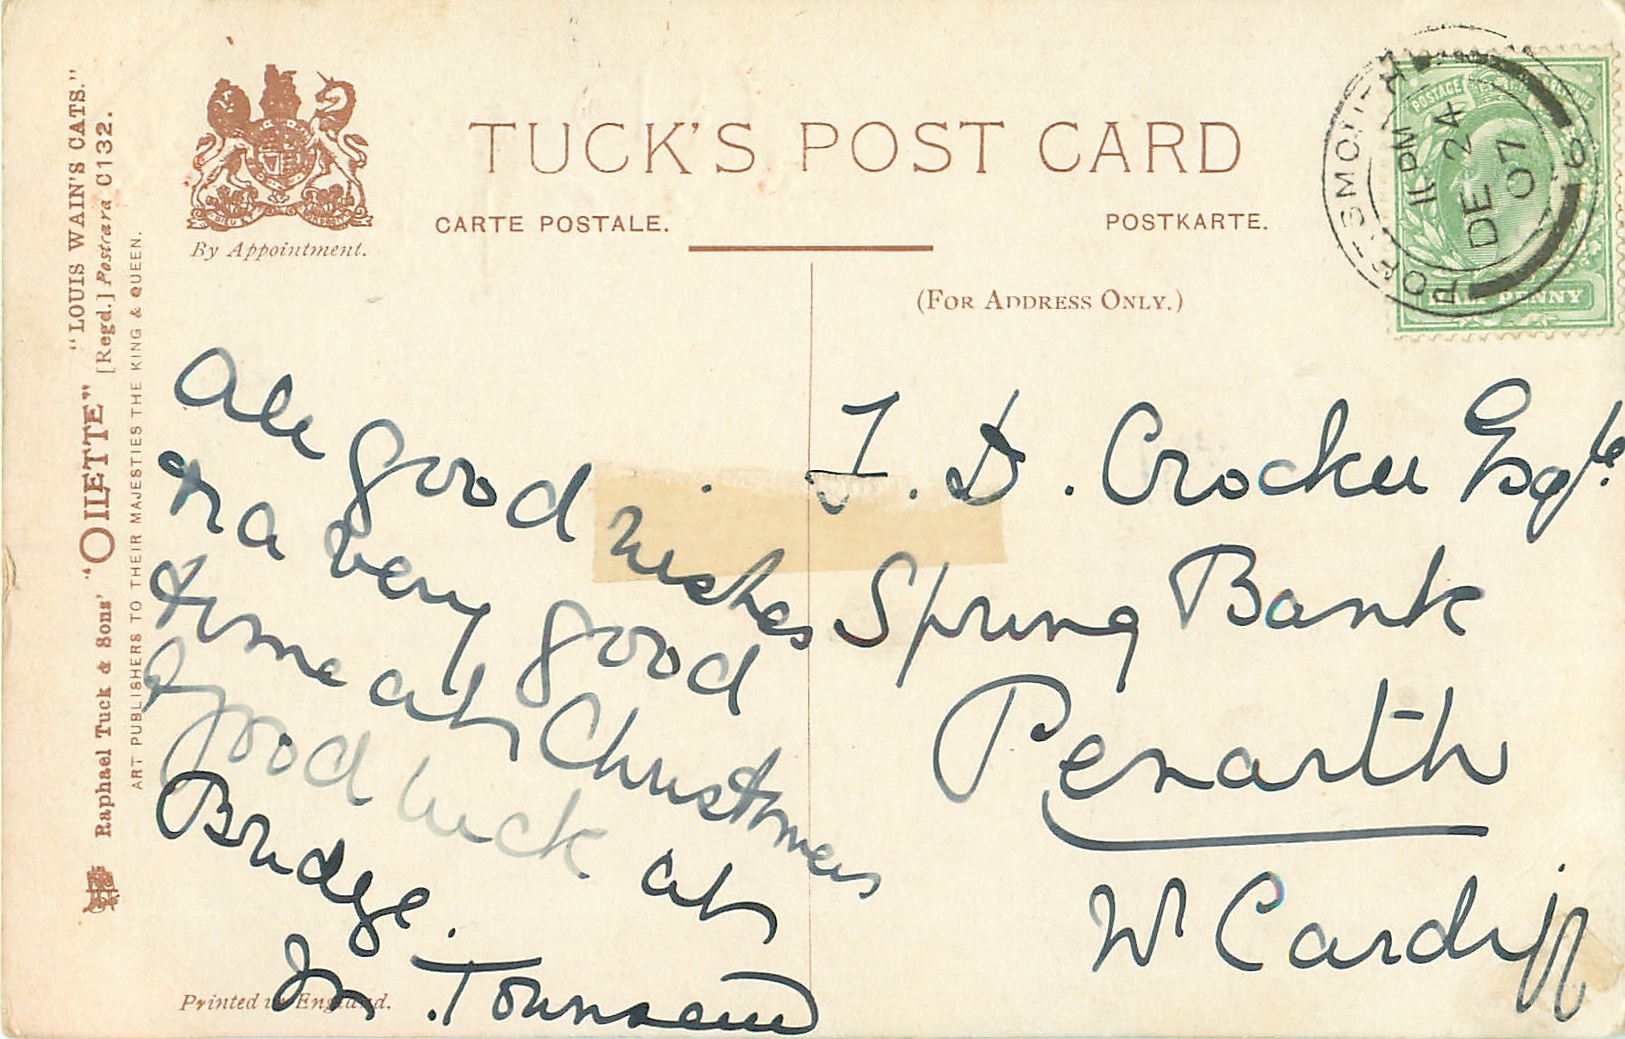 TUCK'S POST CARD
CARTE POSTALE.
POSTKARTE.
By Appointment.
(FOR ADDRESS ONLY.)
"LOUIS WAIN'S CATS."
[Regd.] Postcard C132.
Raphael Tuck & Sons' "OILETTE"
ART PUBLISHERS TO THEIR MAJESTIES THE KING & QUEEN.
POSTAGE
HALF PENNY
PORTSMOUTH
11 PM
DE 24
07
6
All good wishes
for a very good
time at Christmas
& good luck at
Bridge.
Townsend
Printed in England.
D. Crocker Esqre.
Spring Bank
Penarth
Nr Cardiff